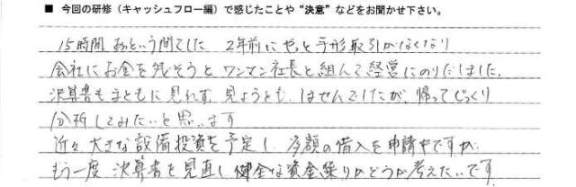 ■ 今回の研修(キャッシュフロー編)で感じたことや“決意”などをお聞かせ下さい。
15時間あっという間でした 2年前にやっと手形取引がなくなり
会社にお金を残そうとワンマン社長と組んで経営にのりだしました。
決算書もまともに見れず、見ようとも しませんでしたが、帰ってじっくり
分析してみたいと思います
近々大きな設備投資を予定し 多額の借入を申請中ですが
もう一度 決算書を見直し 健全な資金繰りかどうか考えたいです